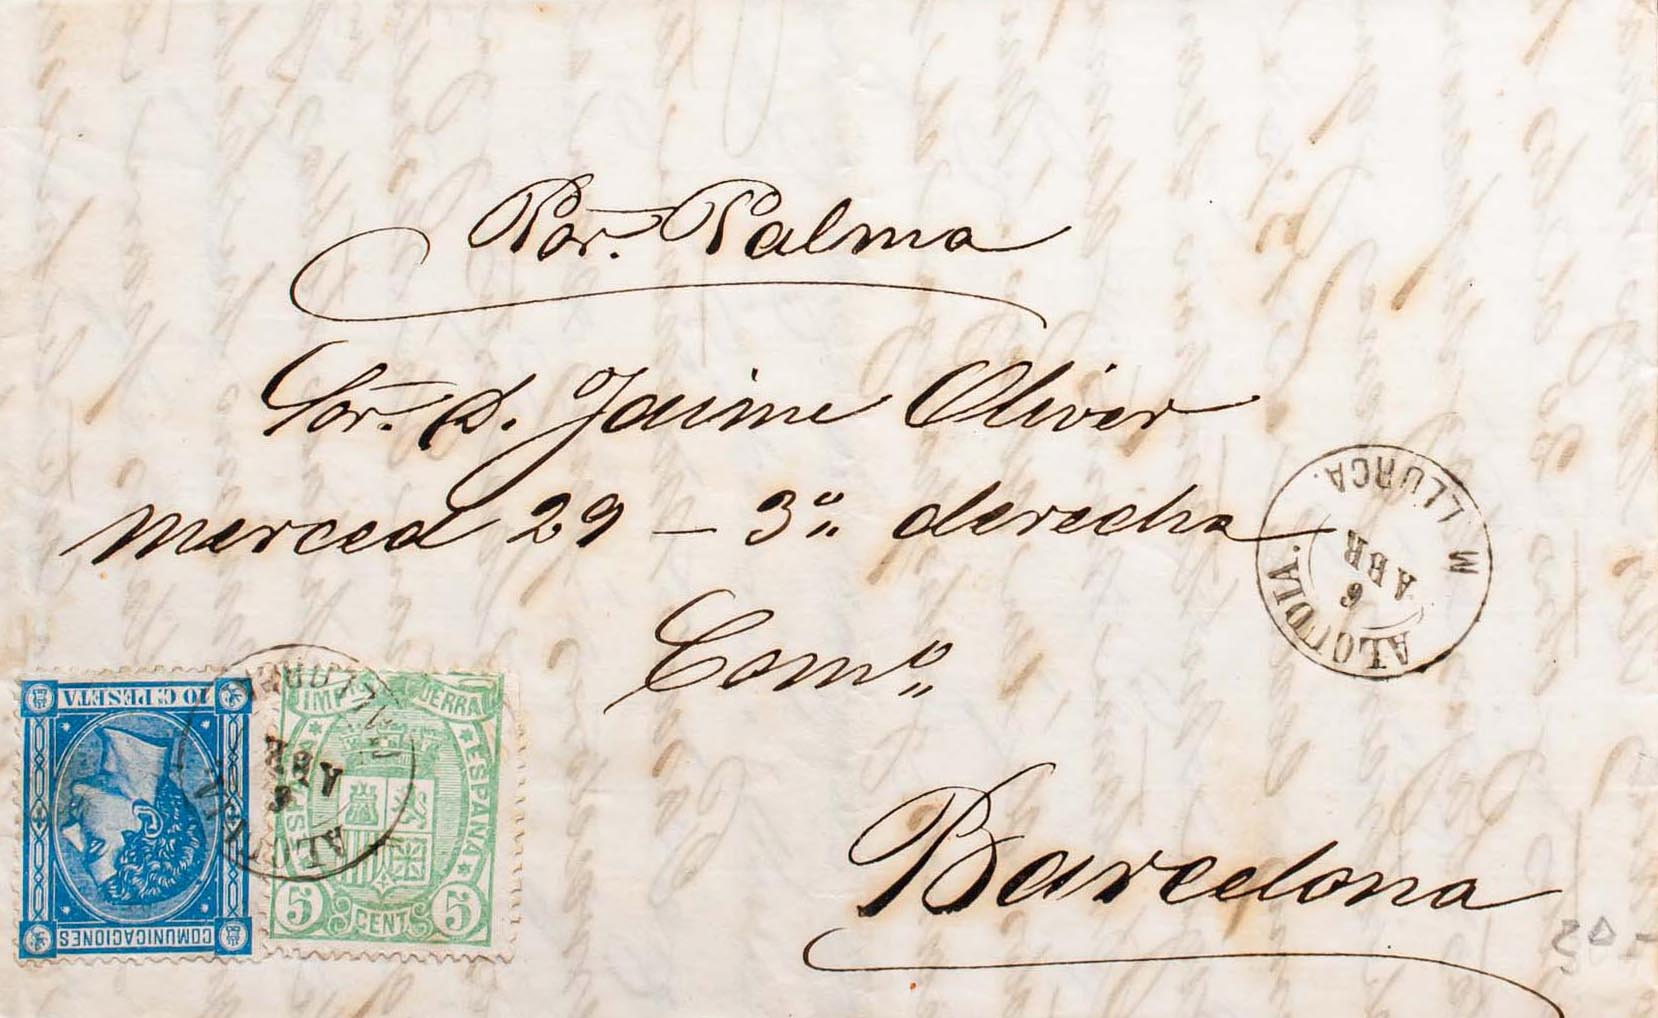 Por. Palma
Sor. D. Jaime Oliver
Merced 29 – 3º derecha
Comº
Barcelona
ALCUDIA.
6
ABR
M LLURCA.
10 C. PESETA
COMUNICACIONES
IMPTO GUERRA
ESPAÑA
ESPAÑA
5 CENT 5
ALCUDIA
6
ABR